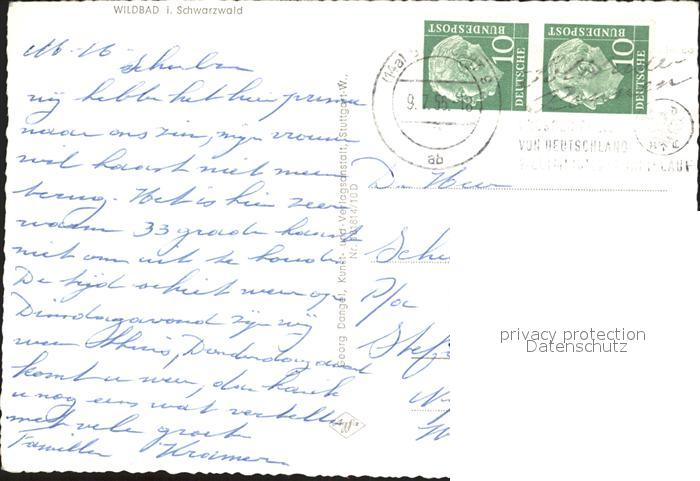 WILDBAD i. Schwarzwald
wij hebben het hier prima
naar ons zin, mijn vrouw
wil haast niet meer
terug. Het is hier zeer
warm 33 graden haast
niet om uit te houden
De tijd schiet weer op
Dinsdagavond zijn wij
weer thuis, Donderdag avond
komt u weer, dan kan ik
u nog eens wat vertellen
met vele groeten
Familie Kramer
Georg Dangel, Kunst- und Verlagsanstalt, Stuttgart-W.,
10
DEUTSCHE
BUNDESPOST
10
DEUTSCHE
BUNDESPOST
VON DEUTSCHLAND
ab
De Heer
P/a
privacy protection
Datenschutz